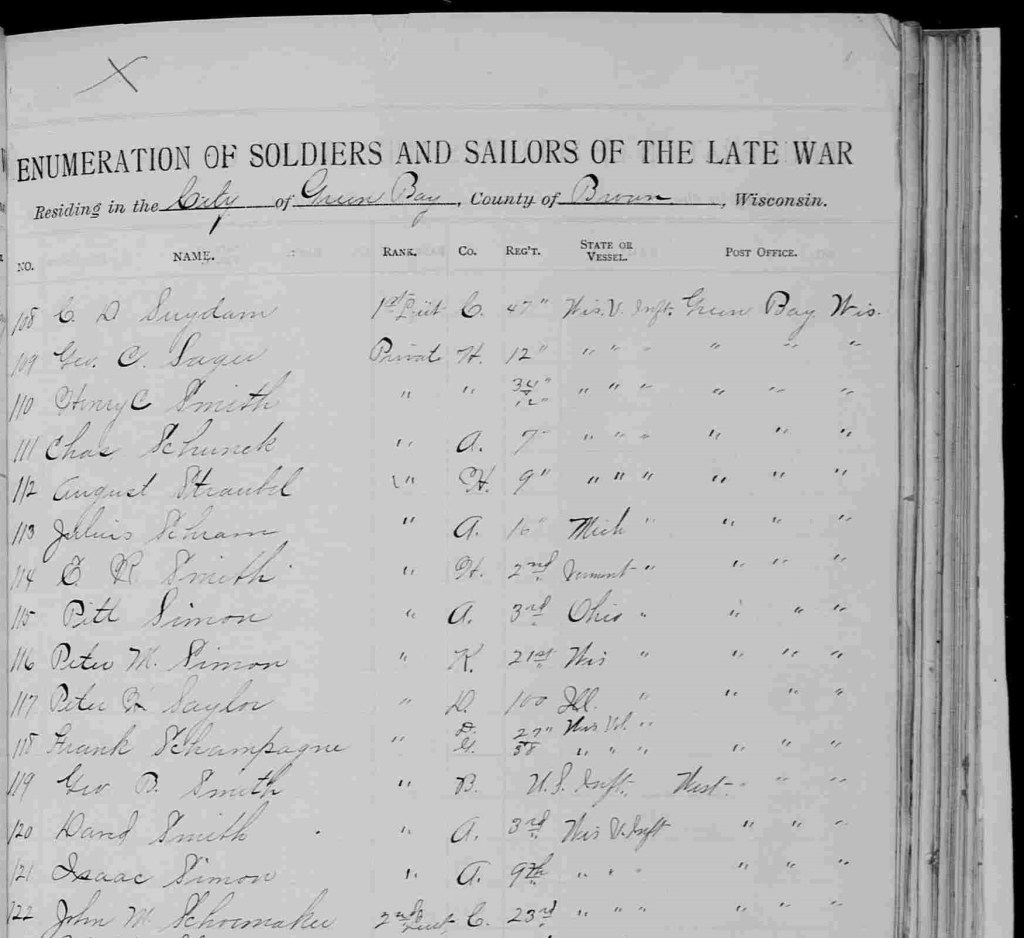 X
ENUMERATION OF SOLDIERS AND SAILORS OF THE LATE WAR
Residing in the City of Green Bay, County of Brown, Wisconsin.
NO. NAME. RANK. CO. REG'T. STATE OR VESSEL. POST OFFICE.
108 C. D Suydam 1st Lieut C. 47" Wis. V. Inft. Green Bay Wis.
109 Geo. C. Sager Private H. 12" " " " " " "
110 Henry C Smith " " " " " " " "
111 Chas Schunck " A. 7" " " " " " "
112 August Straubel " H. 9" " " " " " "
113 Julius Schram " A. 16" Mich " " " "
114 E. R Smith " H. 2nd Vermont " " " "
115 Pitt Simon " A. 3rd Ohio " " " "
116 Peter M. Simon " K. 21st Wis " " " "
117 Peter Saylor " D. 100 Ill. " " " "
118 Frank Schampagne " D. 27" Wis Vol "
G. 58 " " " " " "
119 Geo B. Smith " B. U.S. Inft. West " " "
120 David Smith " A. 3rd Wis V. Inft " " "
121 Isaac Simon " A. 9th " " " " " "
122 John M. Schoemaker 2nd Lieut, C. 23rd " " " " " "